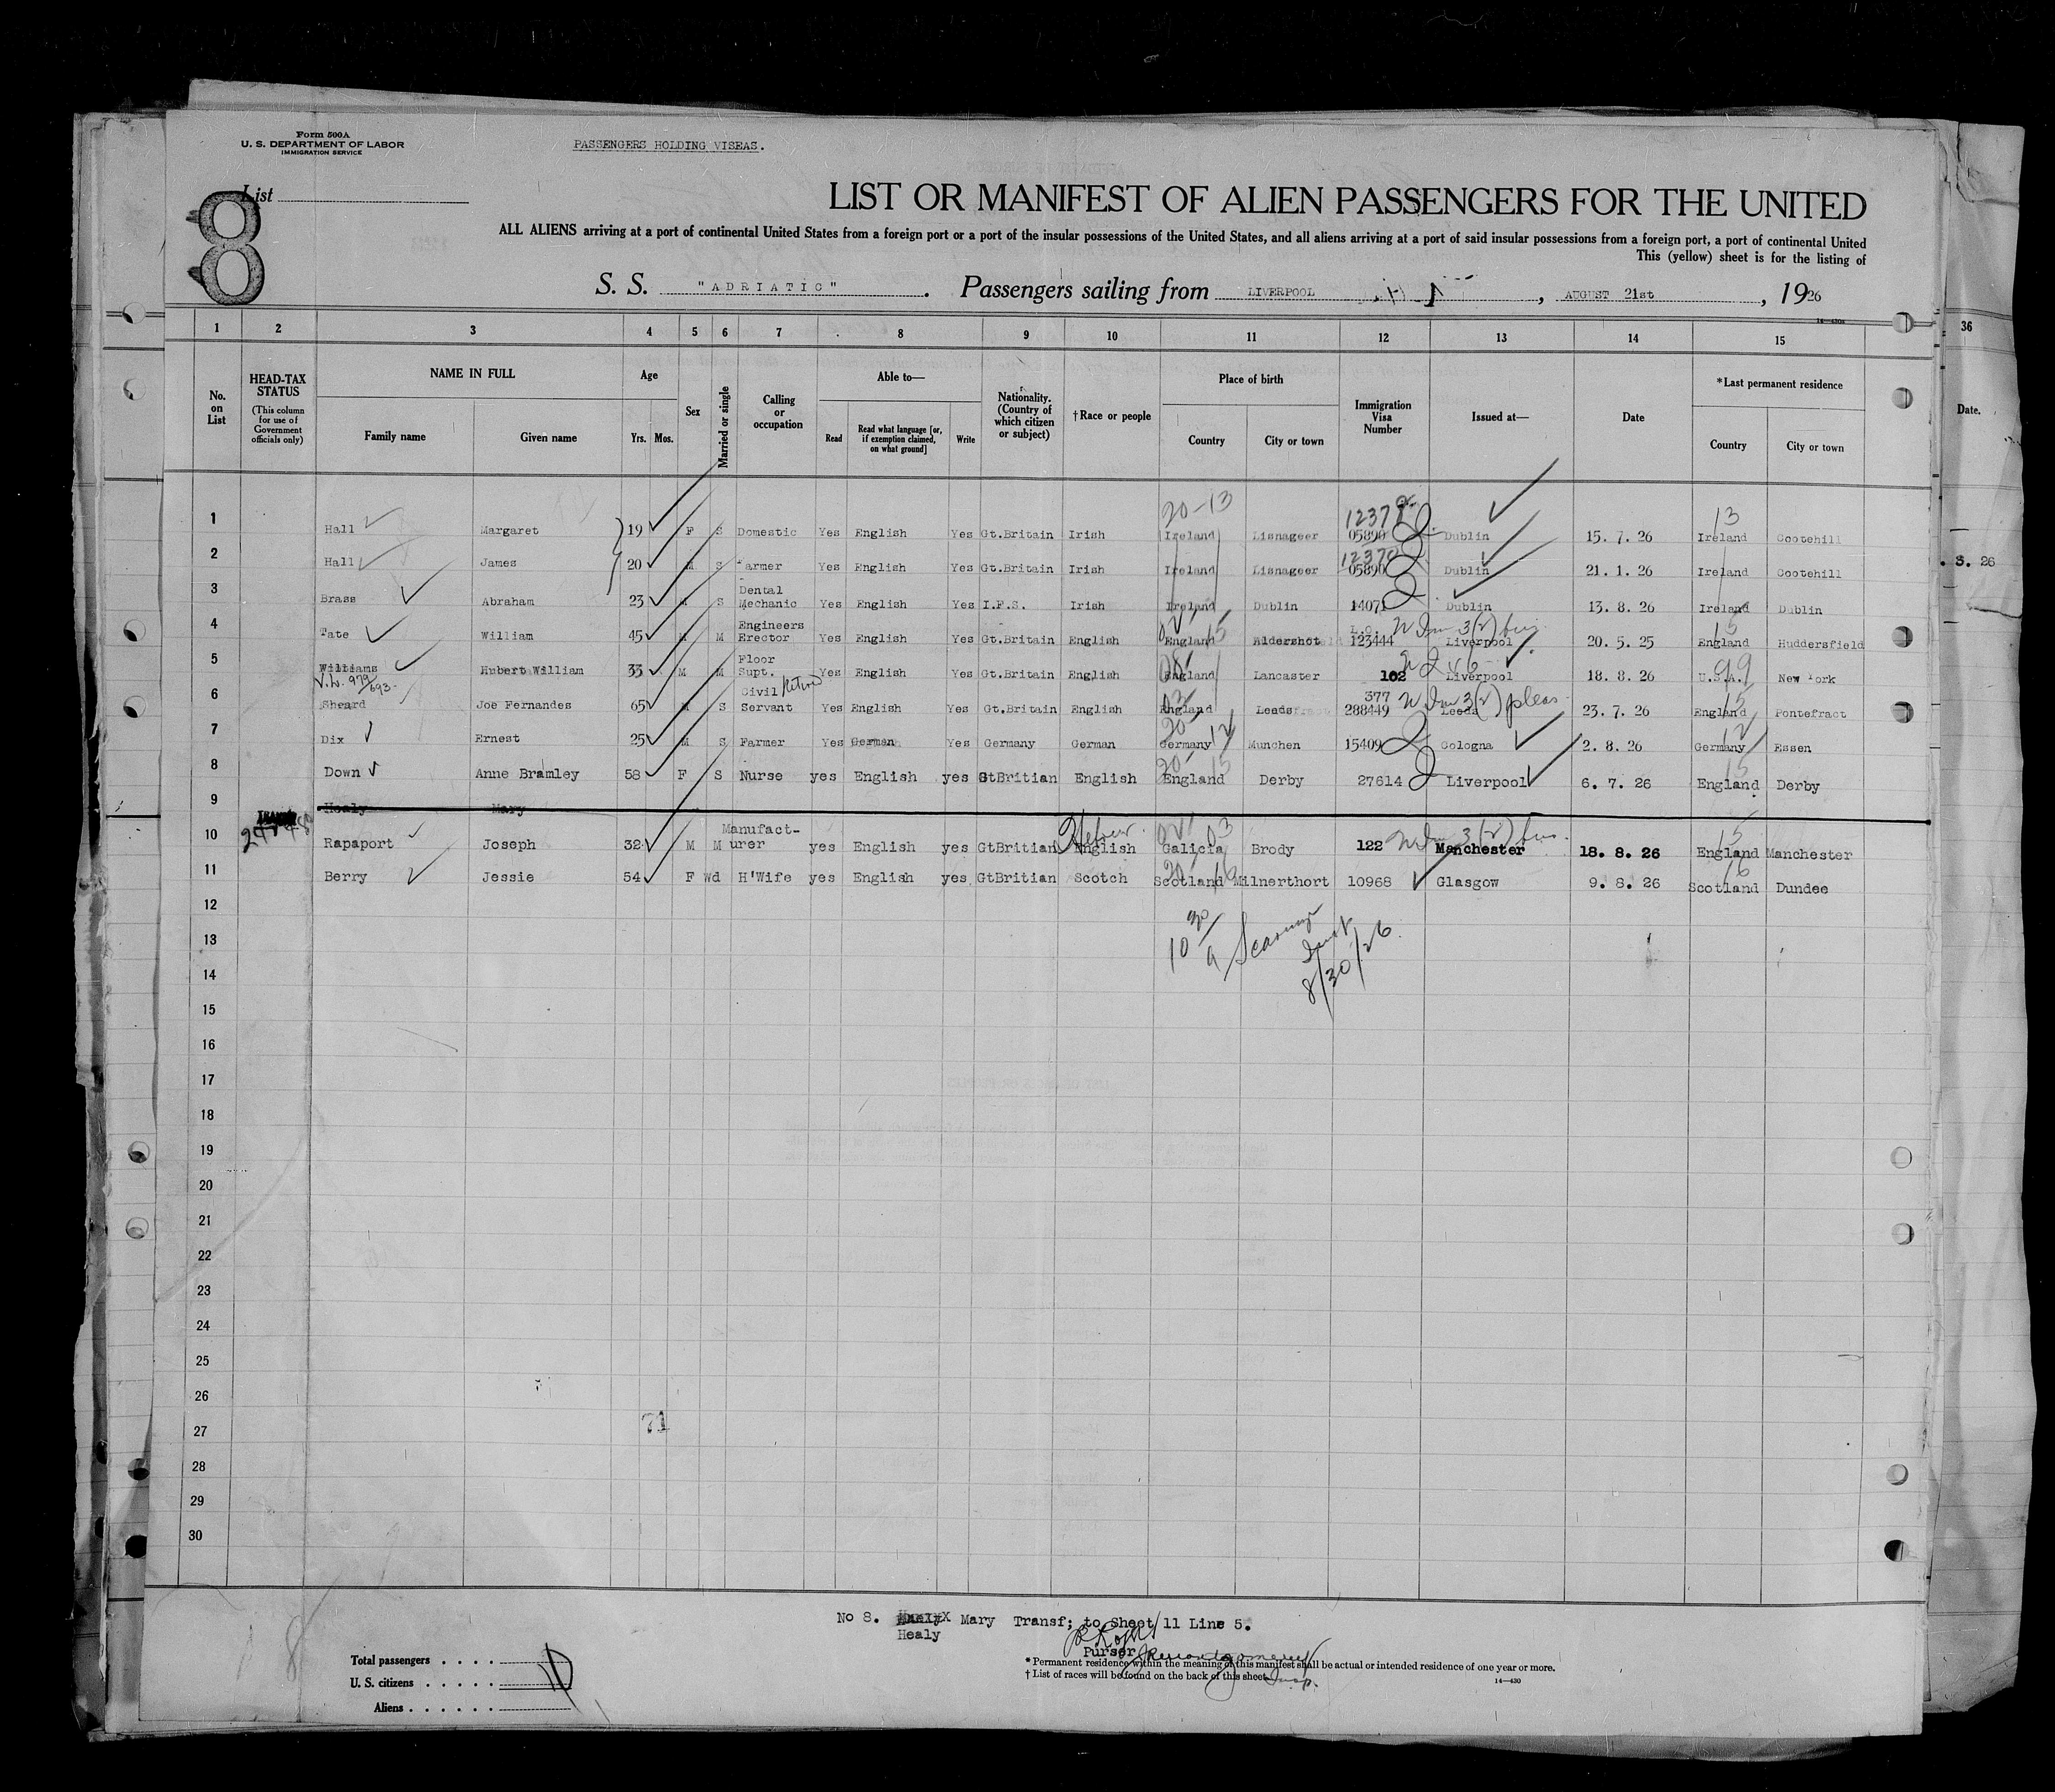 Form 500A
U. S. DEPARTMENT OF LABOR
IMMIGRATION SERVICE
PASSENGERS HOLDING VISEAS.
List
8
LIST OR MANIFEST OF ALIEN PASSENGERS FOR THE UNITED
ALL ALIENS arriving at a port of continental United States from a foreign port or a port of the insular possessions of the United States, and all aliens arriving at a port of said insular possessions from a foreign port, a port of continental United
This (yellow) sheet is for the listing of
S. S. "ADRIATIC". Passengers sailing from LIVERPOOL, AUGUST 21st, 1926
14—430a
1 2 3 4 5 6 7 8 9 10 11 12 13 14 15 36
No. on List
HEAD-TAX STATUS (This column for use of Government officials only)
NAME IN FULL
Family name Given name
Age
Yrs. Mos.
Sex
Married or single
Calling or occupation
Able to—
Read Read what language [or, if exemption claimed, on what ground] Write
Nationality. (Country of which citizen or subject)
†Race or people
Place of birth
Country City or town
Immigration Visa Number
Issued at—
Date
*Last permanent residence
Country City or town
Date.
20-13 12378 13
1 Hall Margaret 19 F S Domestic Yes English Yes Gt.Britain Irish Ireland Lisnageer 05890 Dublin 15. 7. 26 Ireland Cootehill
12370
2 Hall James 20 M S Farmer Yes English Yes Gt.Britain Irish Ireland Lisnageer 05890 Dublin 21. 1. 26 Ireland Cootehill
S. 26
3 Brass Abraham 23 M S Dental Mechanic Yes English Yes I.F.S. Irish Ireland Dublin 14071 Dublin 13. 8. 26 Ireland Dublin
4 Tate William 45 M M Engineers Erector Yes English Yes Gt.Britain English England 15 Aldershot 123444 Liverpool 20. 5. 25 England 15 Huddersfield
5 Williams Hubert William 33 M M Floor Supt. Yes English Yes Gt.Britain English England Lancaster 102 Liverpool 18. 8. 26 U.S.A. 99 New York
V.L. 979/693
6 Sheard Joe Fernandes 65 M S Civil Servant Retired Yes English Yes Gt.Britain English England Leeds 377 288449 Leeds 3(2) pleas 23. 7. 26 England 15 Pontefract
7 Dix Ernest 25 M S Farmer Yes German Yes Germany German Germany 20 12 Munchen 15409 Cologna 2. 8. 26 Germany 12 Essen
8 Down Anne Bramley 58 F S Nurse yes English yes GtBritian English England 20 15 Derby 27614 Liverpool 6. 7. 26 England 15 Derby
9 Healy Mary
10 Rapaport Joseph 32 M M Manufact-urer yes English yes GtBritian English Hebrew Galicia 03 Brody 122 Manchester 3(2) bus. 18. 8. 26 England 15 Manchester
11 Berry Jessie 54 F Wd H'Wife yes English yes GtBritian Scotch Scotland 20 16 Milnerthort 10968 Glasgow 9. 8. 26 Scotland 16 Dundee
12
13
8/30/26
14
15
16
17
18
19
20
21
22
23
24
25
26
27
71
28
29
30
No 8. Mary Transf; to Sheet 11 Line 5.
Healy
Purser
Total passengers
U. S. citizens
Aliens
11
* Permanent residence within the meaning of this manifest shall be actual or intended residence of one year or more.
† List of races will be found on the back of this sheet.
Insp.
14—430